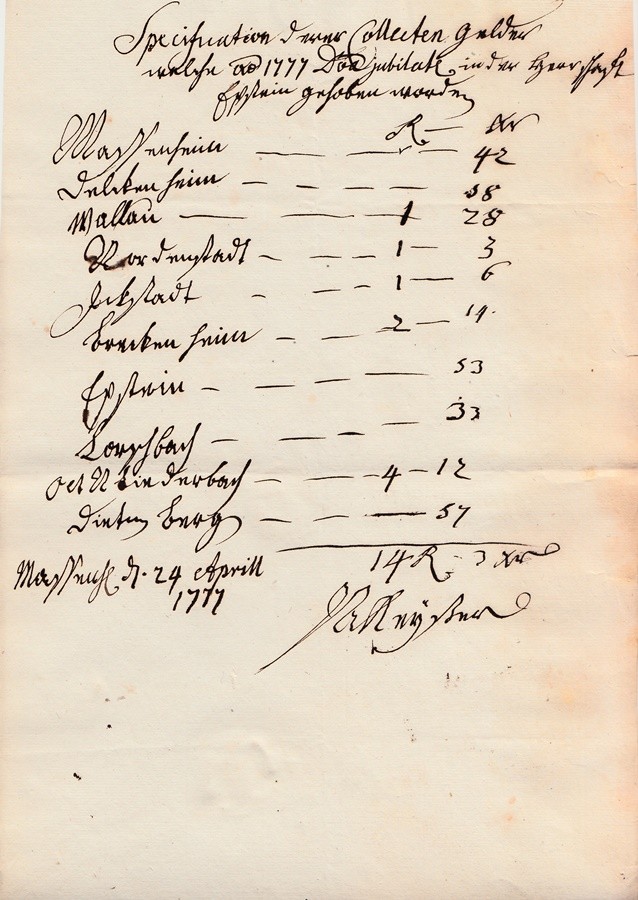 Specification derer Collecten Gelder
welche ao 1777 Dom Jubilate in der Herrschafft
Epstein gehoben worden
R — Xr
Massenheim — — — 42
Delckenheim — — — — 58
Wallau — — 1 28
Nordenstadt — — — 1 — 3
Ickstadt — — — 1 — 6
Breckenheim — — 2 — 14
Epstein — — — — 53
Lorschbach — — — — 33
Niederbach — — — 4 — 12
Dietenberg — — — 57
14 R — 3 Xr
Massenh. d. 24 Aprill
1777
Keyßer